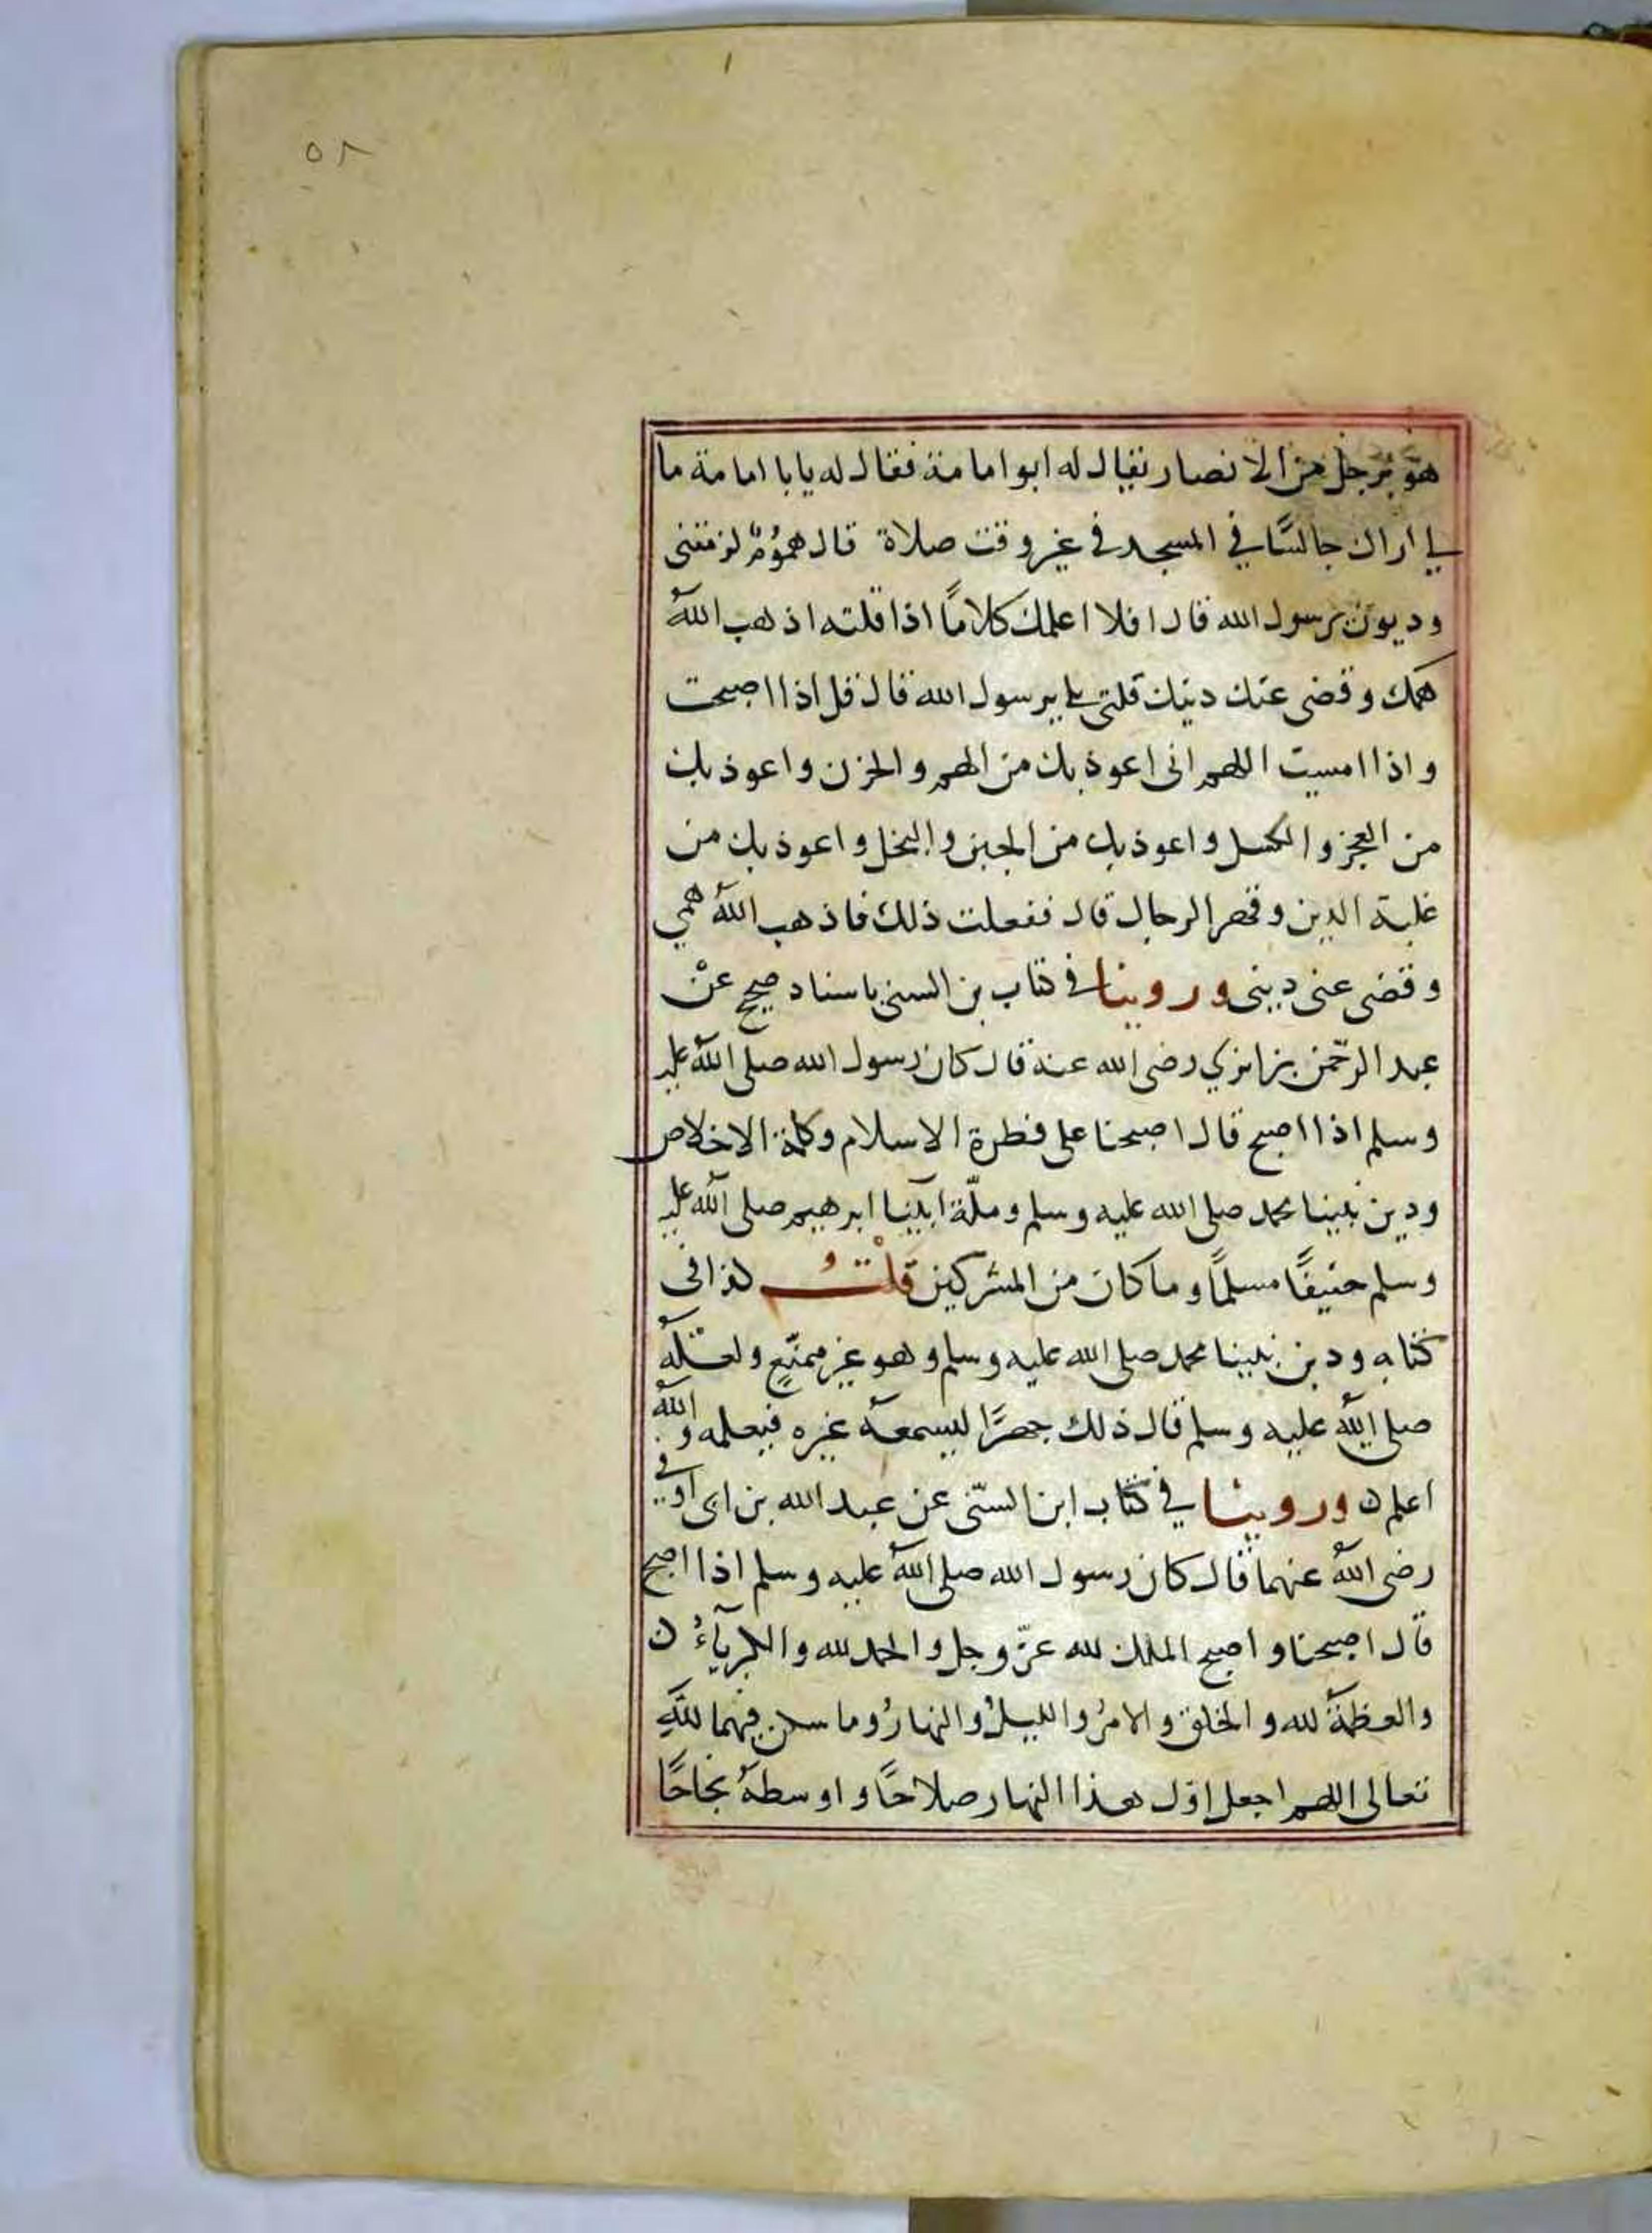 ٥٨
هو برجل من الانصار يقال له ابوامامة فقال له يابا امامة ما
لي اراك جالسًا في المسجد في غير وقت صلاة قال همومٌ لزمتني
وديون يرسول الله قال افلا اعلمك كلامًا اذا قلته اذهب اللهُ
همك وقضى عنك دينك قلت بلى يرسول الله قال قل اذا اصبحت
واذا امسيت اللهم انى اعوذ بك من الهم والحزن واعوذ بك
من العجز والكسل واعوذ بك من الجبن والبخل واعوذ بك من
غلبة الدين وقهر الرجال قال ففعلت ذلك فاذهب اللهُ همي
وقضى عنى دينى وروينا في كتاب بن السنى باسناد صحيح عنْ
عبد الرحّمن بن ابزي رضى الله عنه قال كان رسول الله صلى اللهُ عليه
وسلم اذا اصبح قال اصبحنا على فطرة الاسلام وكلمة الاخلاص
ودين نبينا محمد صلى الله عليه وسلم وملّة ابينا ابرهيم صلى الله عليه
وسلم حنيفًا مسلمًا وما كان من المشركين قلْتُ كذا فى
كتابه ودين نبينا محمد صلى الله عليه وسلم وهو غير ممتنعٍ ولعلّه
صلى اللهُ عليه وسلم قال ذلك جهرًا ليسمعهُ غيره فيعلمه واللهُ
اعلم ن وروينا في كتاب ابن السنّى عن عبد الله بن ابى اوفي
رضى اللهُ عنهما قال كان رسول الله صلى اللهُ عليه وسلم اذا اصبح
قال اصبحنا واصبح الملك لله عزّ وجل والحمد لله والكبريآءُ ن
والعظمةُ لله والخلق والامرُ والليلُ والنهارُ وما سكن فيهما للهِ
تعالى اللهم اجعل اوّل هذا النهار صلاحًا واوسطهُ نجاحًا